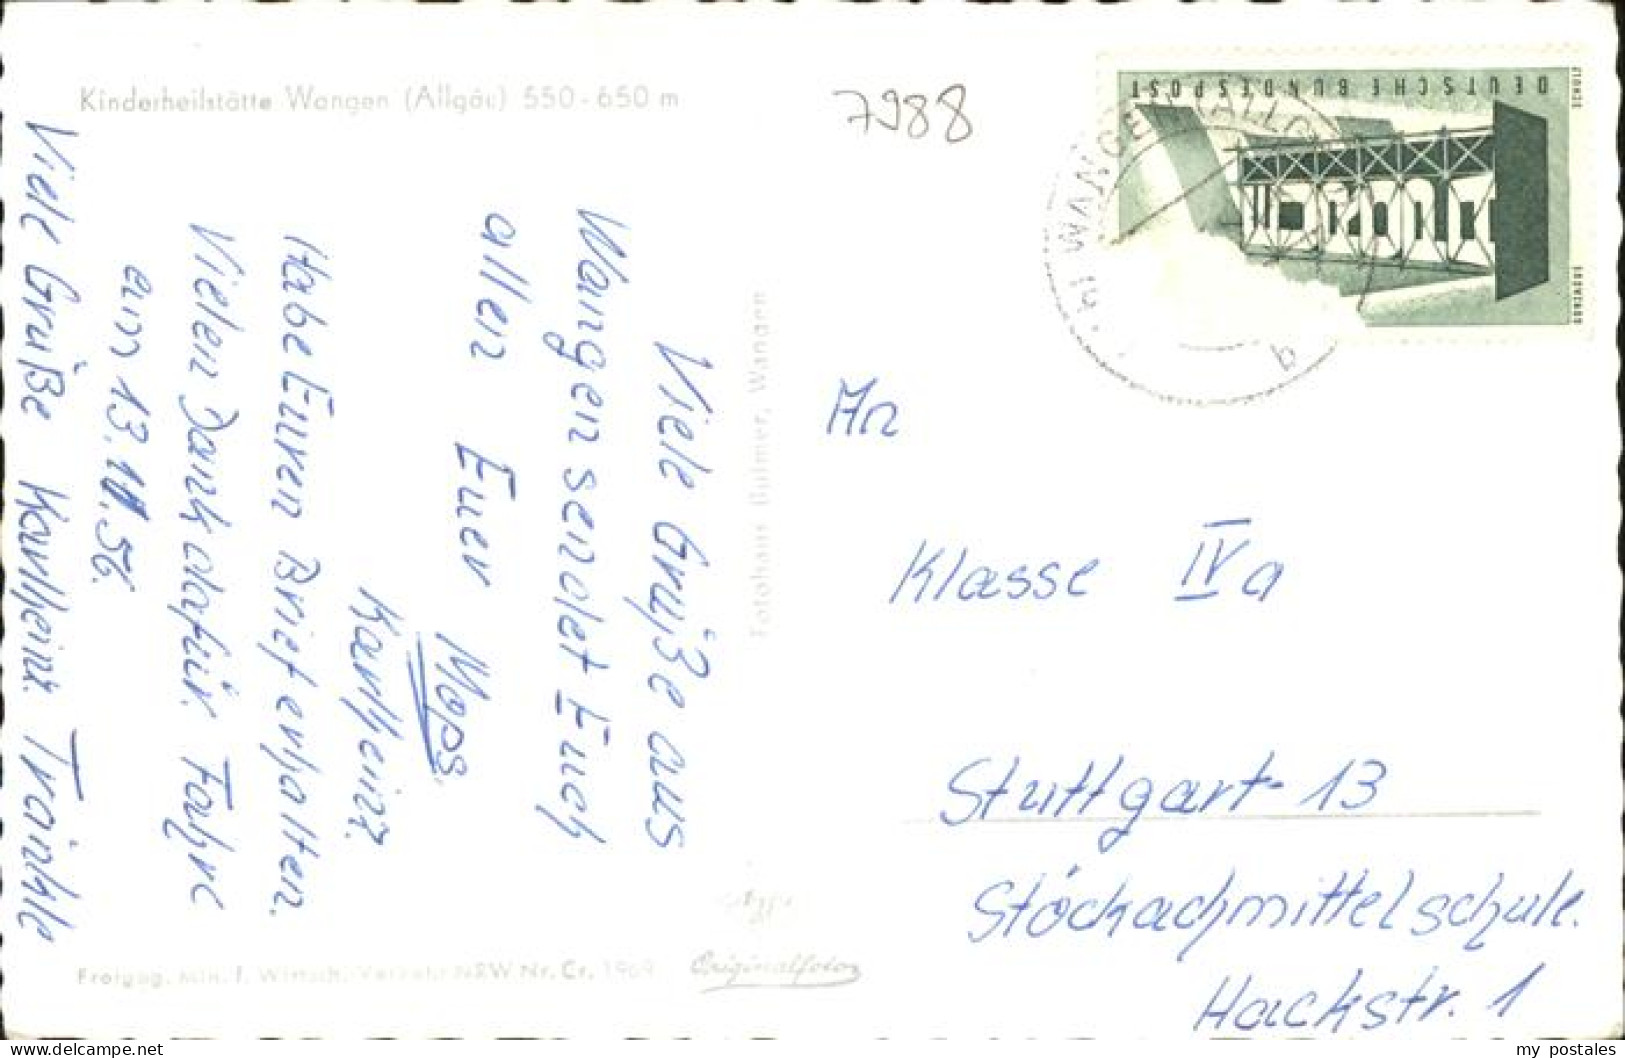 Kinderheilstätte Wangen (Allgäu) 550-650 m
7988
DEUTSCHE BUNDESPOST
WANGEN (ALLGÄU)
Viele Grüße aus
Wangen sendet Euch
allen Euer Mops.
Karlheinz.
Habe Euren Brief erhalten.
Vielen Dank dafür. Fahre
am 13.11.56.
Viele Grüße Karlheinz. Trainkle
Fotohaus Dulmer, Wangen
An
Klasse IVa
Stuttgart-13
Stöckachmittelschule.
Hackstr. 1
Freigeg. Min. f. Wirtsch. Verkehr NRW Nr. Cr. 1969
Originalfoto
my postales